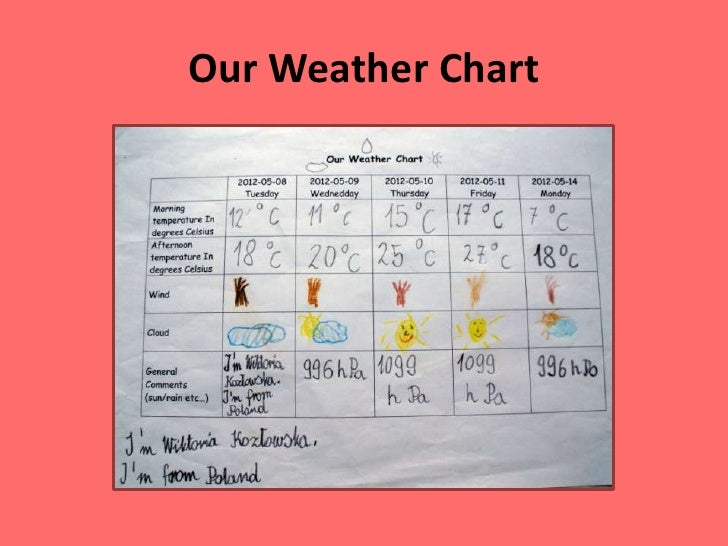 Our Weather Chart
Our Weather Chart
2012-05-08 2012-05-09 2012-05-10 2012-05-11 2012-05-14
Tuesday Wednedday Thursday Friday Monday
Morning
temperature In
degrees Celsius
12°C 11°C 15°C 17°C 7°C
Afternoon
temperature In
degrees Celsius
18°C 20°C 25°C 27°C 18°C
Wind
Cloud
General
Comments
(sun/rain etc...)
I'm Wiktoria
Kozłowska.
I'm from
Poland
996 hPa
1099
hPa
1099
hPa
996 hPa
I'm Wiktoria Kozłowska.
I'm from Poland